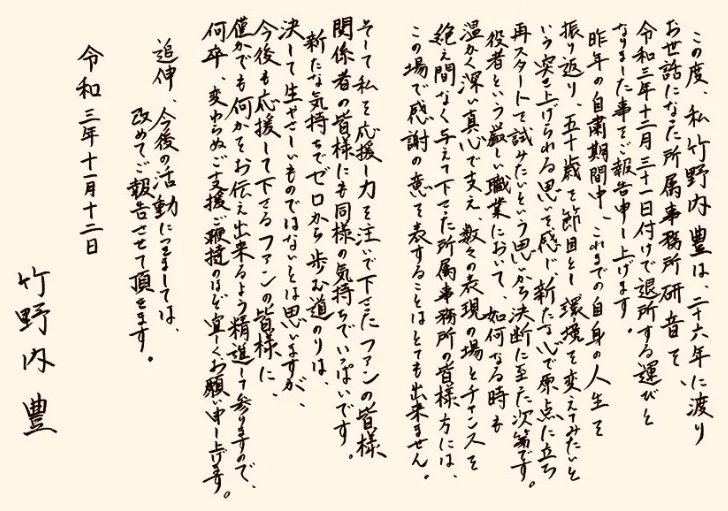 この度、私 竹野内豊は、二十六年に渡り
お世話になった所属事務所研音を、
令和三年十二月三十一日付けで退所する運びと
なりました事をご報告申し上げます。
昨年の自粛期間中、これまでの自身の人生を
振り返り、五十歳を節目とし環境を変えてみたいと
いう突き上げられる思いを感じ、新たな心で原点に立ち
再スタートを試みたいという思いから決断に至た次第です。
役者という厳しい職業において、如何なる時も
温かく深い真心で支え、数々の表現の場とチャンスを
絶え間なく与えて下さた所属事務所の皆様方には、
この場で感謝の意を表することはとても出来ません。
そして私を応援し力を注いで下さたファンの皆様、
関係者の皆様にも同様の気持ちでいっぱいです。
新たな気持ちでゼロから歩む道のりは、
決して生やさしいものではないとは思いますが、
今後も応援して下さるファンの皆様に、
僅かでも何かをお伝え出来るよう精進して参りますので、
何卒、変わらぬご支援ご鞭撻のほど宜しくお願い申し上げます。
追伸、今後の活動につきましては、
改めてご報告させて頂きます。
令和 三年十一月十二日
竹野内 豊